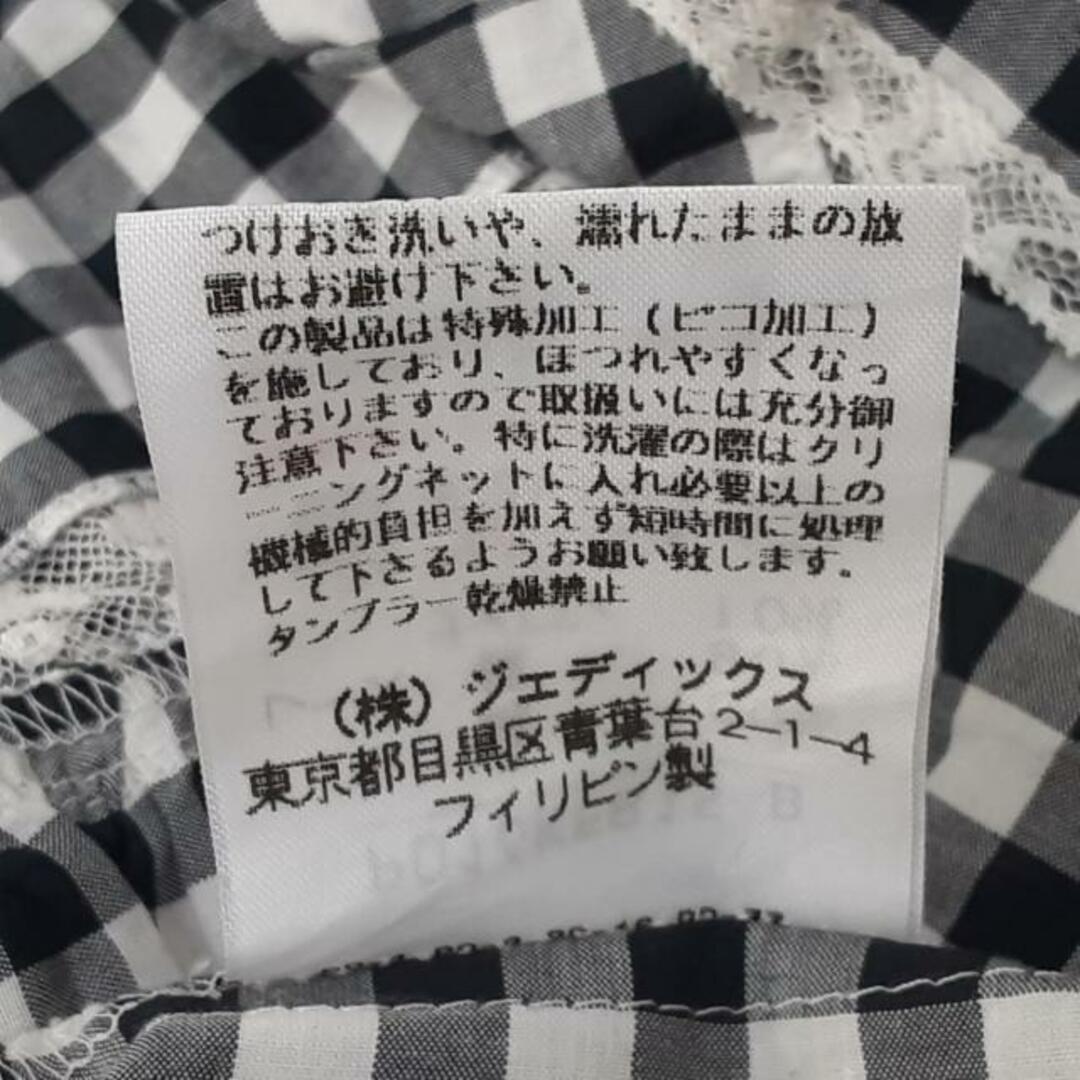 つけおき洗いや、濡れたままの放
置はお避け下さい。
この製品は特殊加工(ピコ加工)
を施しており、ほつれやすくなっ
ておりますので取扱いには充分御
注意下さい。特に洗濯の際はクリ
ーニングネットに入れ必要以上の
機械的負担を加えず短時間に処理
して下さるようお願い致します。
タンブラー乾燥禁止
(株)ジェディックス
東京都目黒区青葉台2-1-4
フィリピン製